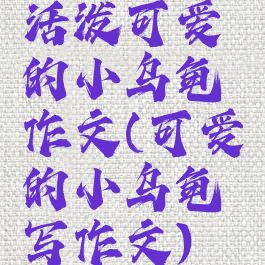 活泼可爱
的小乌龟
作文(可爱
的小乌龟
写作文)